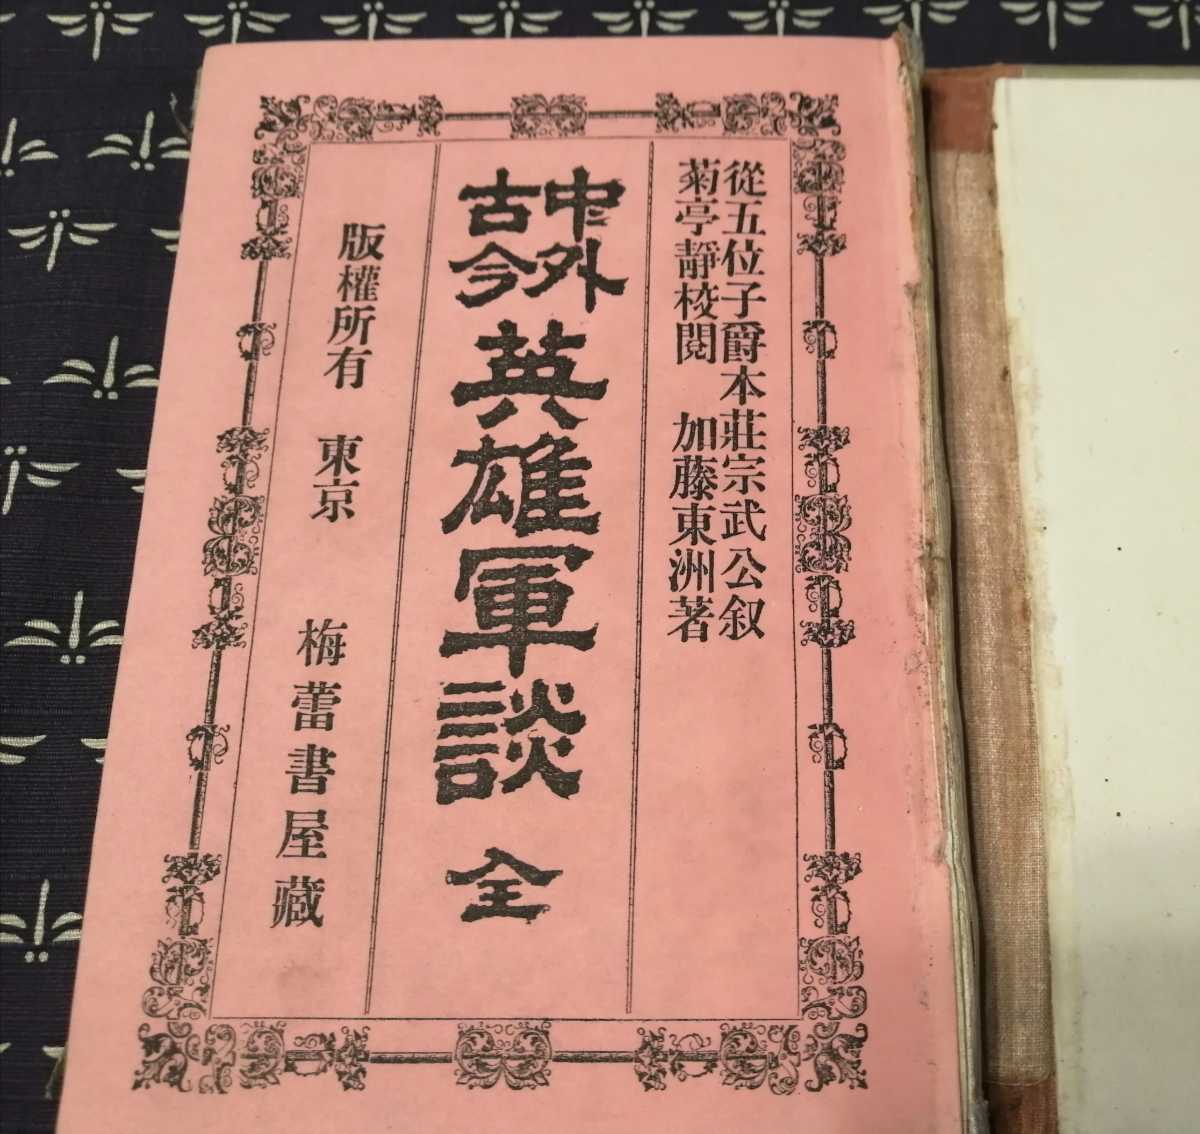 從五位子爵本莊宗武公叙
菊亭靜校閱 加藤東洲著
中外
古今
英雄軍談 全
版權所有 東京 梅蕾書屋藏